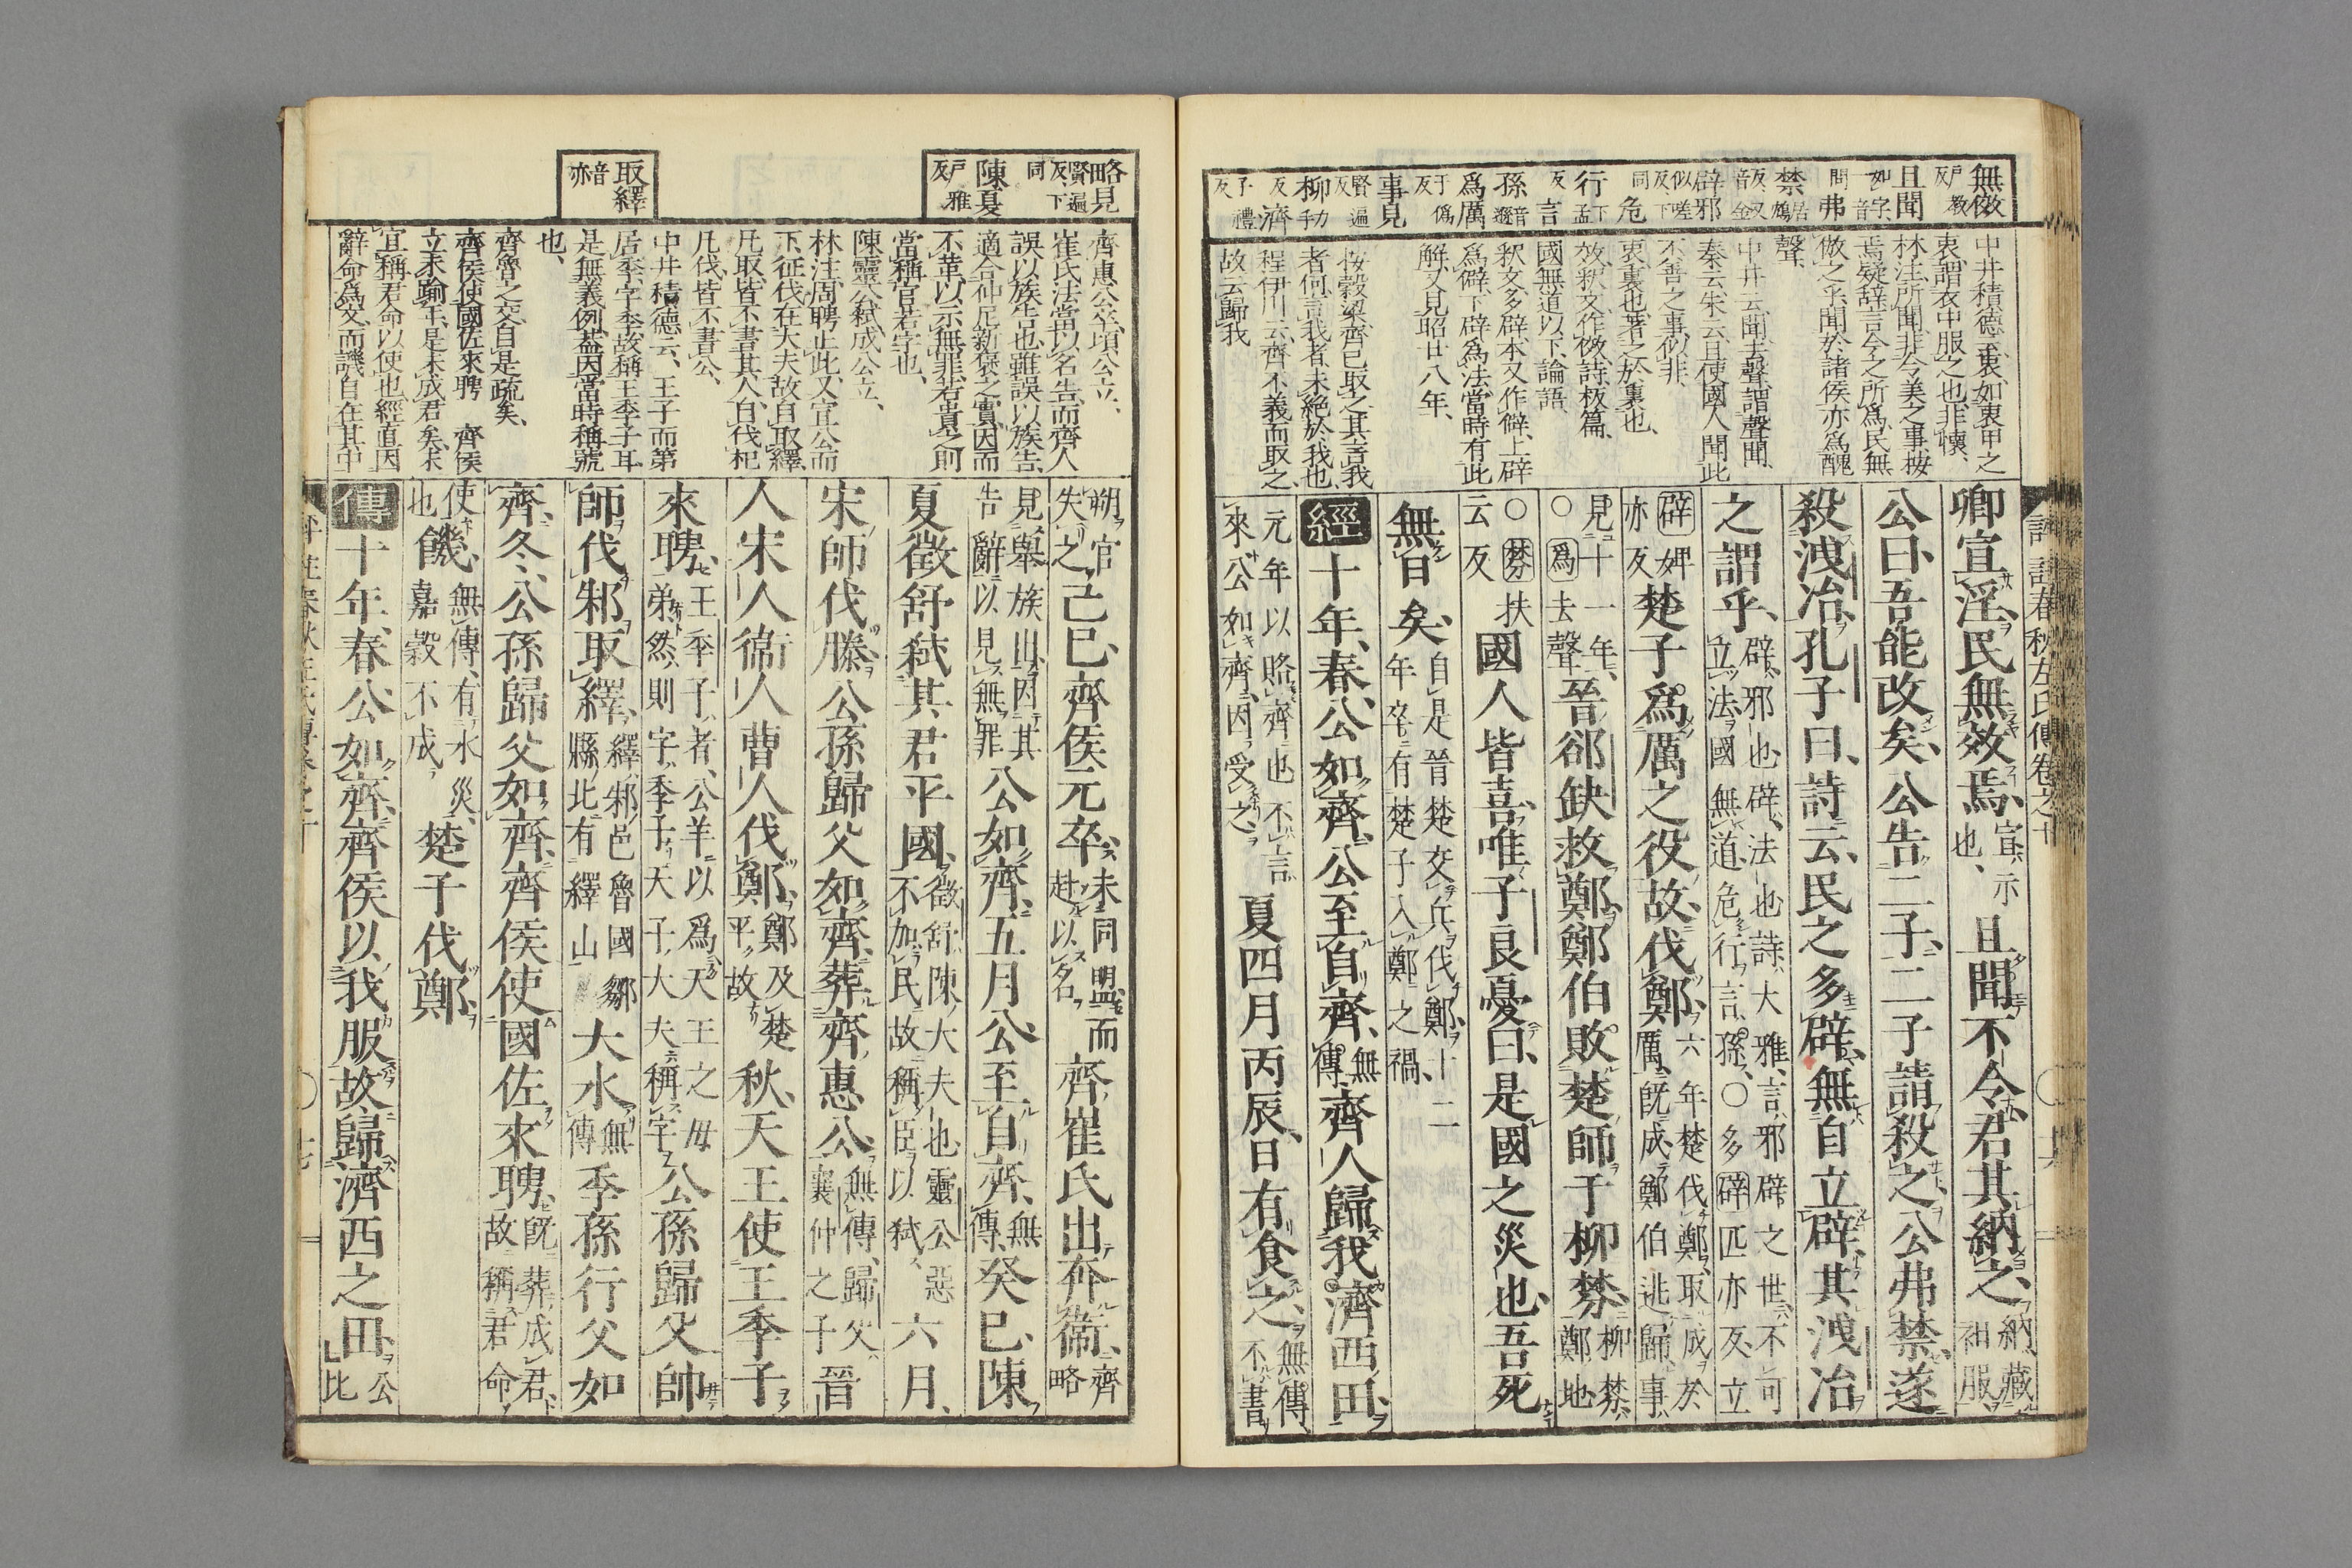 無傚
戸教
反
且聞
如字、
一音
問
弗
禁
居鴆
反、又
音金
辟邪
似嗟
反下
同
危
行
下孟
反
言
孫
音遜
爲厲
于僞
反
事見
賢遍
反
柳
力手
反
濟
子禮
反
中井積德云、衷、如衷甲之
衷、謂衣中服之也、非懷、
林注、所聞非令美之事、按
焉疑辭、言今之所爲、民無
傚之乎、聞於諸侯亦爲醜
聲、
中井云、聞去聲、謂聲聞、
秦云、朱云、且使國人聞此
不善之事、似非、
衷裏也、著之於裏也、
效、釋文作傚、詩板篇、
國無道以下、論語、
釋文、多辟、本又作僻、上辟
爲僻、下辟爲法、當時有此
解、又見昭廿八年、
按穀梁、齊已取之、其言我
者何、言我者、未絶於我也、
程伊川云、齊不義而取之、
故云歸我
卿宣淫、民無效焉、宣、示
也、且聞不令、君其納之、納、藏
衵服、
公曰、吾能改矣、公告二子、二子請殺之、公弗禁、遂
殺洩冶、孔子曰、詩云、民之多辟、無自立辟、其洩冶
之謂乎、辟、邪也、辟、法也、詩、大雅、言邪辟之世、不可
立法、國無道、危行言孫、○多辟匹亦反、立
辟婢
亦反楚子爲厲之役故、伐鄭、六年楚伐鄭、取成於
厲、既成、鄭伯逃歸、事
見十一年、
○爲去聲晉郤缺救鄭、鄭伯敗楚師于柳棼、柳棼、
鄭地
○棼扶
云反國人皆喜、唯子良憂曰、是國之災也、吾死
無日矣、自是晉楚交兵伐鄭、十二
年卒有楚子入鄭之禍、
經十年、春、公如齊、公至自齊、無
傳齊人歸我濟西田、
元年以賂齊也、不言
來、公如齊、因受之、夏四月丙辰、日有食之、無傳、
不書
朔、官
失之、己巳、齊侯元卒、未同盟而
赴以名、齊崔氏出奔衞、齊
略
見擧族出、因其
告辭以見無罪公如齊、五月、公至自齊、無
傳、癸巳、陳
夏徵舒弑其君平國、徵舒、陳大夫也、靈公惡
不加民、故稱臣以弑、六月、
宋師伐滕、公孫歸父如齊、葬齊惠公、無傳、歸父、
襄仲之子晉
人宋人衞人曹人伐鄭、鄭及楚
平、故秋、天王使王季子
來聘、王季子者、公羊以爲天王之母
弟、然則字季子、天子大夫稱字、公孫歸父帥
師伐邾、取繹、繹、邾邑、魯國鄒
縣北有繹山大水、無
傳季孫行父如
齊、冬、公孫歸父如齊、齊侯使國佐來聘、既葬成君、
故稱君命
使也、饑、無傳、有水災、
嘉穀不成、楚子伐鄭、
傳十年、春、公如齊、齊侯以我服故、歸濟西之田、公
比
略見
賢遍
反、下
同
陳夏
戸雅
反
取繹
音
亦
齊惠公卒、頃公立、
崔氏法當以名告、而齊人
誤以族告也、雖誤以族告、
適合仲尼新襃之實、因而
不革、以示無罪、若貴之則
當稱官若字也、
陳靈公弑、成公立、
林注、周聘止此、又宣公而
下、征伐在大夫、故自取繹、
凡取、皆不書其人、自伐杞
凡伐、皆不書公、
中井積德云、王子而第
居季、字季、故稱王季子耳、
是無義例、蓋因當時稱號
也、
齊魯之交、自是疏矣、
齊侯使國佐來聘 齊侯
立未踰年、是未成君矣、未
宜稱君命以使也、經直因
辭命爲文、而譏自在其中